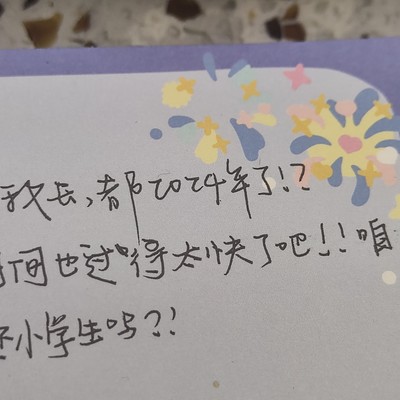 都2024年了!?
间也过得太快了吧!!咱
小学生吗?!